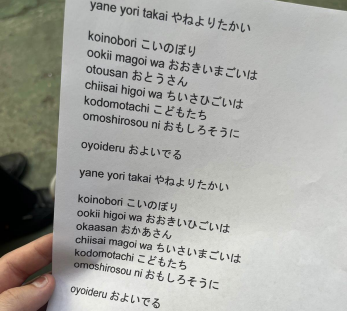 yane yori takai やねよりたかい
koinobori こいのぼり
ookii magoi wa おおきいまごいは
otousan おとうさん
chiisai higoi wa ちいさひごいは
kodomotachi こどもたち
omoshirosou ni おもしろそうに
oyoideru およいでる
yane yori takai やねよりたかい
koinobori こいのぼり
ookii higoi wa おおきいひごいは
okaasan おかあさん
chiisai magoi wa ちいさいまごいは
kodomotachi こどもたち
omoshirosou ni おもしろそうに
oyoideru およいでる